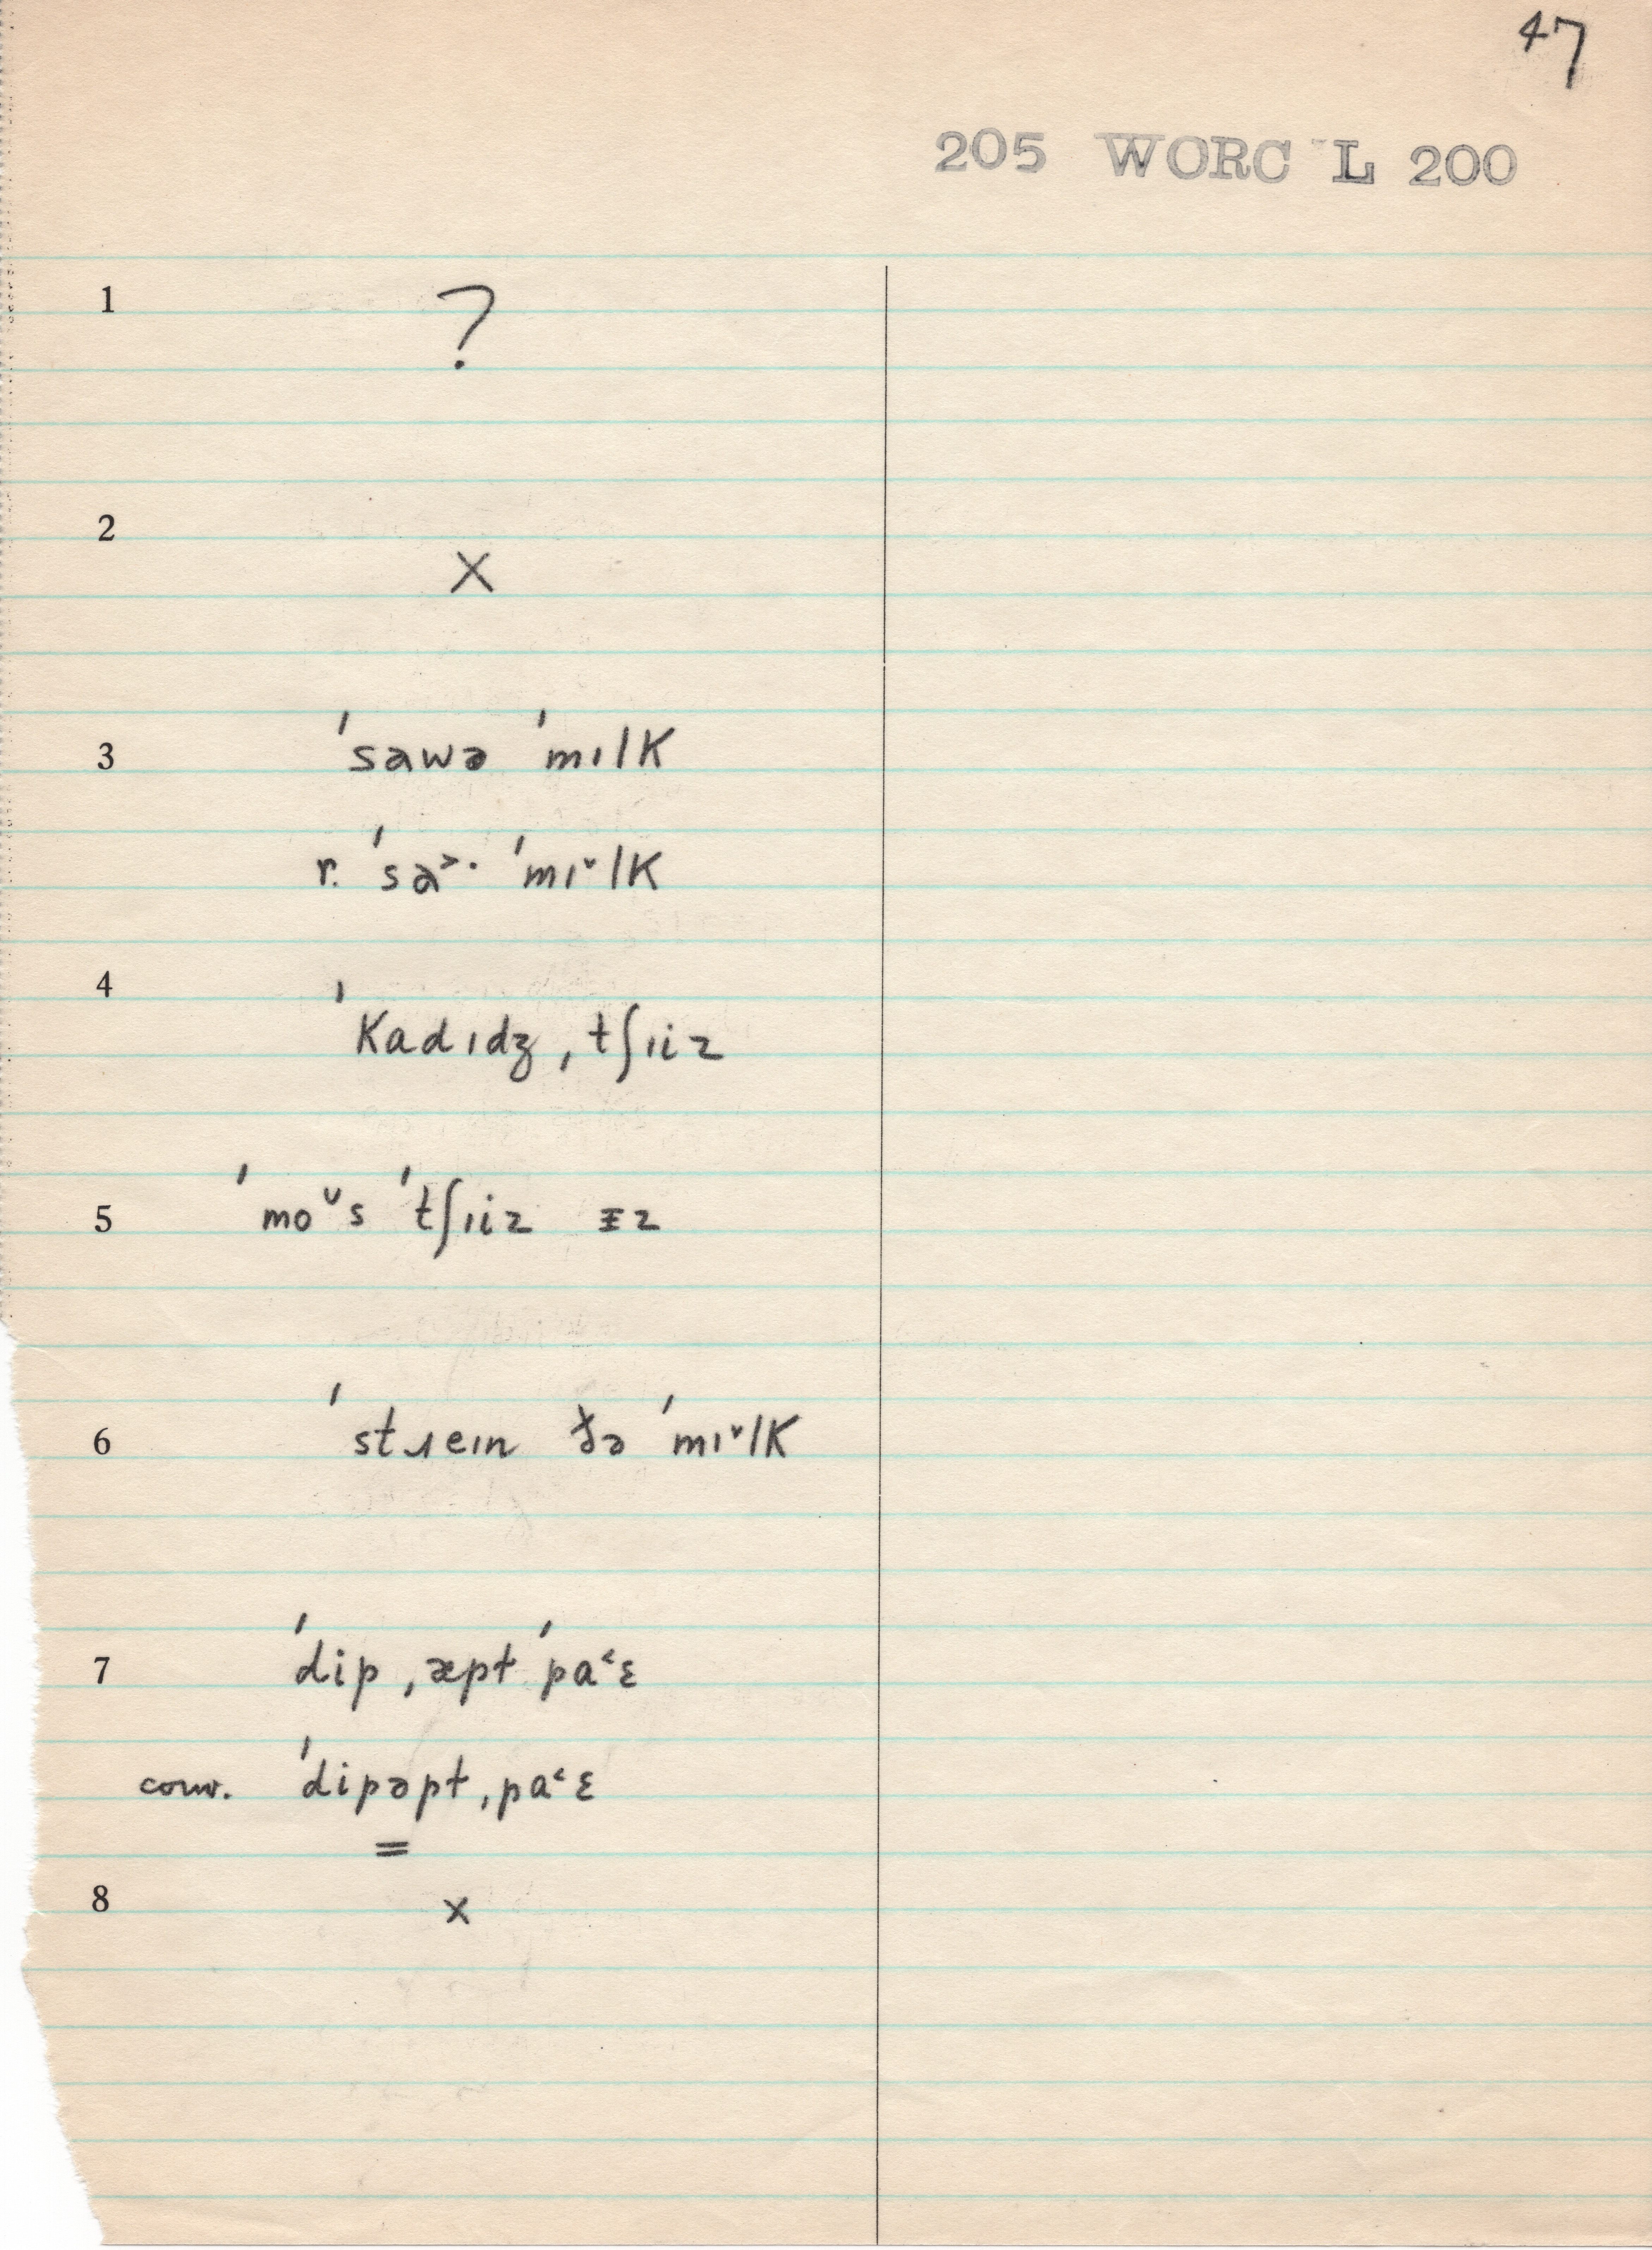 47
205 WORC L 200
1 ?
2 X
3 ˈsawə ˈmɪlk
r. ˈsa˃· ˈmɪ˅lk
4 ˈkadɪdʒ ˌtʃɪiz
5 ˈmo˅s ˈtʃɪiz ɪz
6 ˈstɹeɪn ðə ˈmɪ˅lk
7 ˈdip ˌæpt ˈpa˂ɛ
conv. ˈdipəpt ˌpa˂ɛ
=
8 x